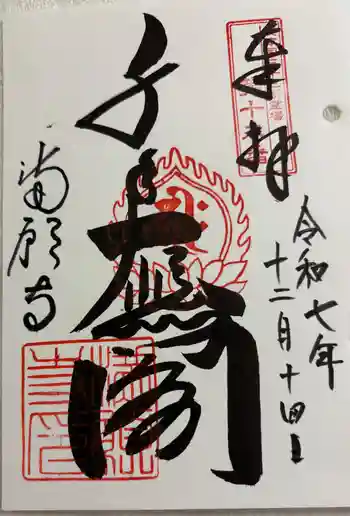 奉拝
令和七年
十二月十四日
千手大悲閣
満願寺